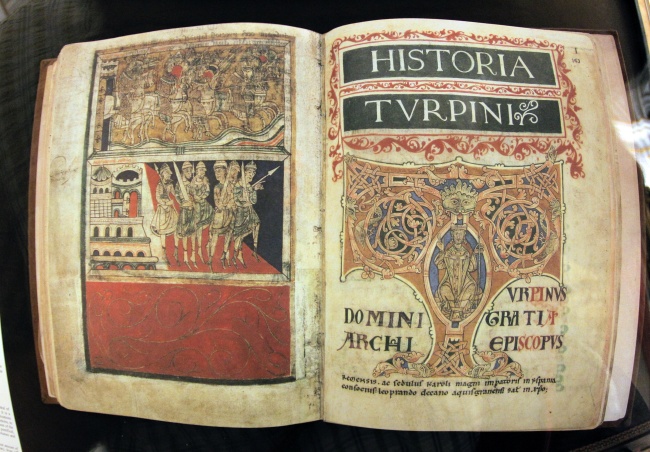 I
163
HISTORIA
TVRPINI
TVRPINVS
DOMINI GRATIA
ARCHI EPISCOPVS
REMENSIS. ac sedulus karoli magni imperatoris in hyspania
consocius. leoprando decano aquisgranensi sal. in xpo;